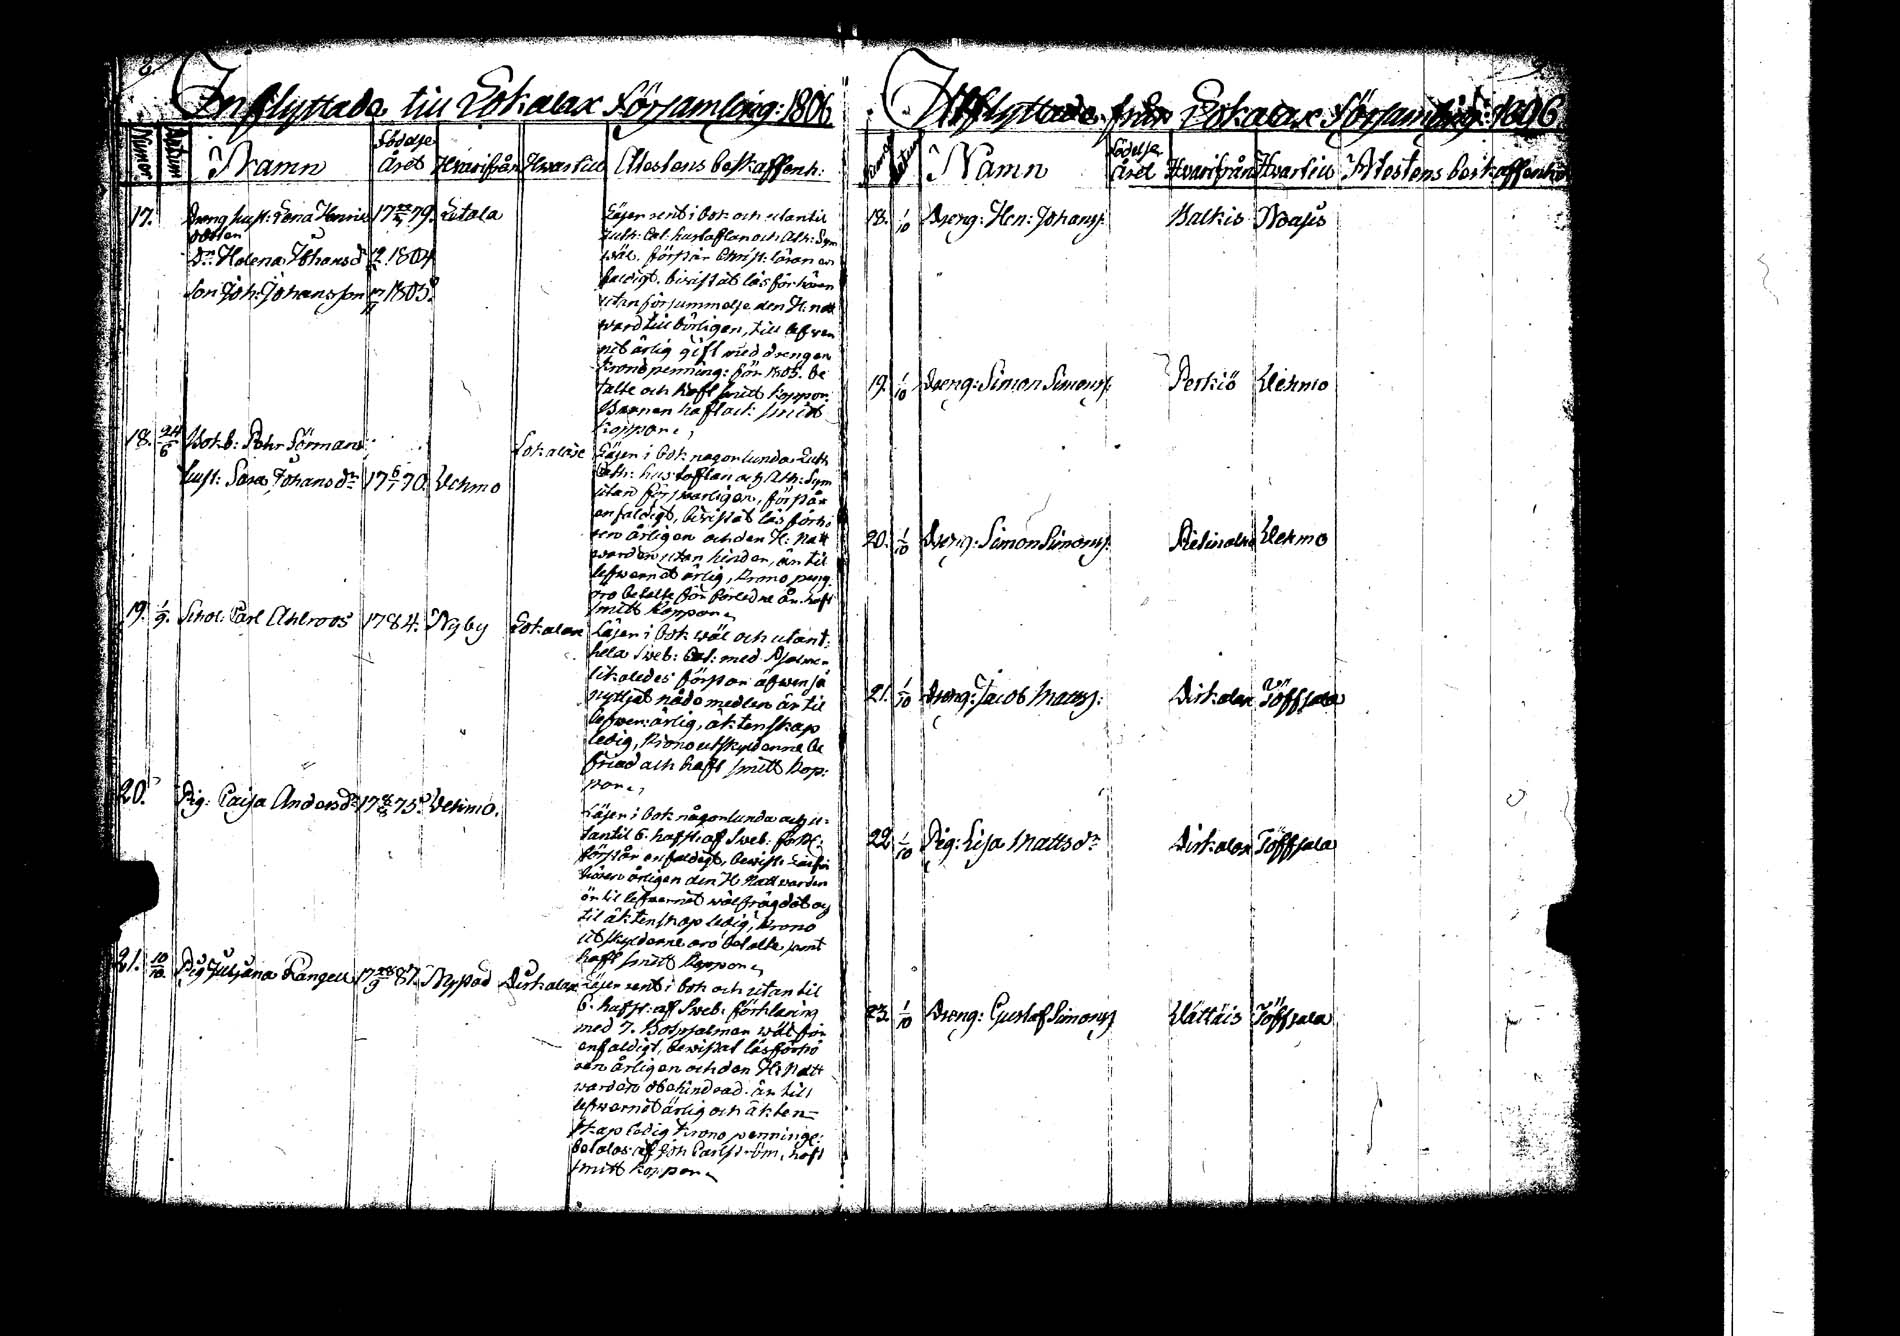 Inflyttade till Lokalax Församling: 1806
Numer Datum Namn Födelse Året Hwarifrån Hwartill Attestens beskaffenh:
17. Dreng hust: Lena Henrics 17 79. Letala
dotter
Dr Helena Johansdr 1804
Son Joh: Johansson 1805.
Läser rent i bok och utantil
Luth: Cat: hustaflan och Ath: Sym
wäl. förstår Christ: läran en
faldigt, bewistat läsförhören
utan försummelse den H: natt
ward till börligen, till lefwer
net ärlig gift med drengen
Krono penning: för 1805. be
talte och haft smitt koppor.
Barnen haft ock smitt
koppor.
18. 24/6 Bokb: Pehr Sörman
hust: Sara Johansdr 17 6/1 70. Vehmo Lokalax
Läser i bok nagorlunda Luth
Cath: hustaflan och Ath: Sym
utan försvarligen, förstår
enfaldigt, bewistat läsförhö
ren årligen och den H: Natt
warden utan hinder, är til
lefwernet ärlig, Krono peng.
äro betalte för förledne år. haft
smitt koppor.
19. 1/9. Schol: Carl Ahlroos 1784. Nyby Lokalax
Läser i bok wäl och utant:
hela Sweb: Cat: med Psalmer
likaledes förstår äfwen så
nyttjat nådemedlen är til
lefwer: ärlig, äktenskap
ledig, Kronoutskylderne be
friad och haft smitt kop:
por.
20. Pig: Caisa Andersdr 17 75. Vehmo.
Läser i bok någorlunda och u:
tantil 6. hufst: af Sweb: förkl:
förstår enfaldigt, bewist: Läsför
hören årligen den H. Nattwarden
är til lefwernet wälfrägdat og
til äktenskap ledig, Krono
utskylderne äro betalte samt
haft smitt koppor.
21. 10/10. Pig Juliana Rangell 17 28/9 87. Nystad Dirkalax
Läser rent i bok och utan til
6. hufst: af Sweb: förklaring
med 7. Botpsalmer wäl för
enfaldigt, bewistat läsförhö
ren årligen och den H: Natt
warden obehindrad. är till
lefwernet ärlig och äkten=
skap ledig Krono penninge:
betalas af Joh Carlström, haft
smitt koppor.
Utflyttade från Lokalax Församling: 1806
Numer Datum Namn Födelse Året Hwarifrån Hwartill Attestens beskaffenhet
18. 1/10 Dreng: Hen: Johanss: Valkis
19. 1/10 Dreng: Simon Simonss: Perkiö Vehmo
20. 1/10 Dreng: Simon Simonss: Vehmo
21. 1/10 Dreng: Jacob Matss: Dirkalax Töffsala
22. 1/10 Pig: Lisa Mattsdr Dirkalax Töffsala
23. 1/10 Dreng: Gustaf Simonss Vättäis Töffsala